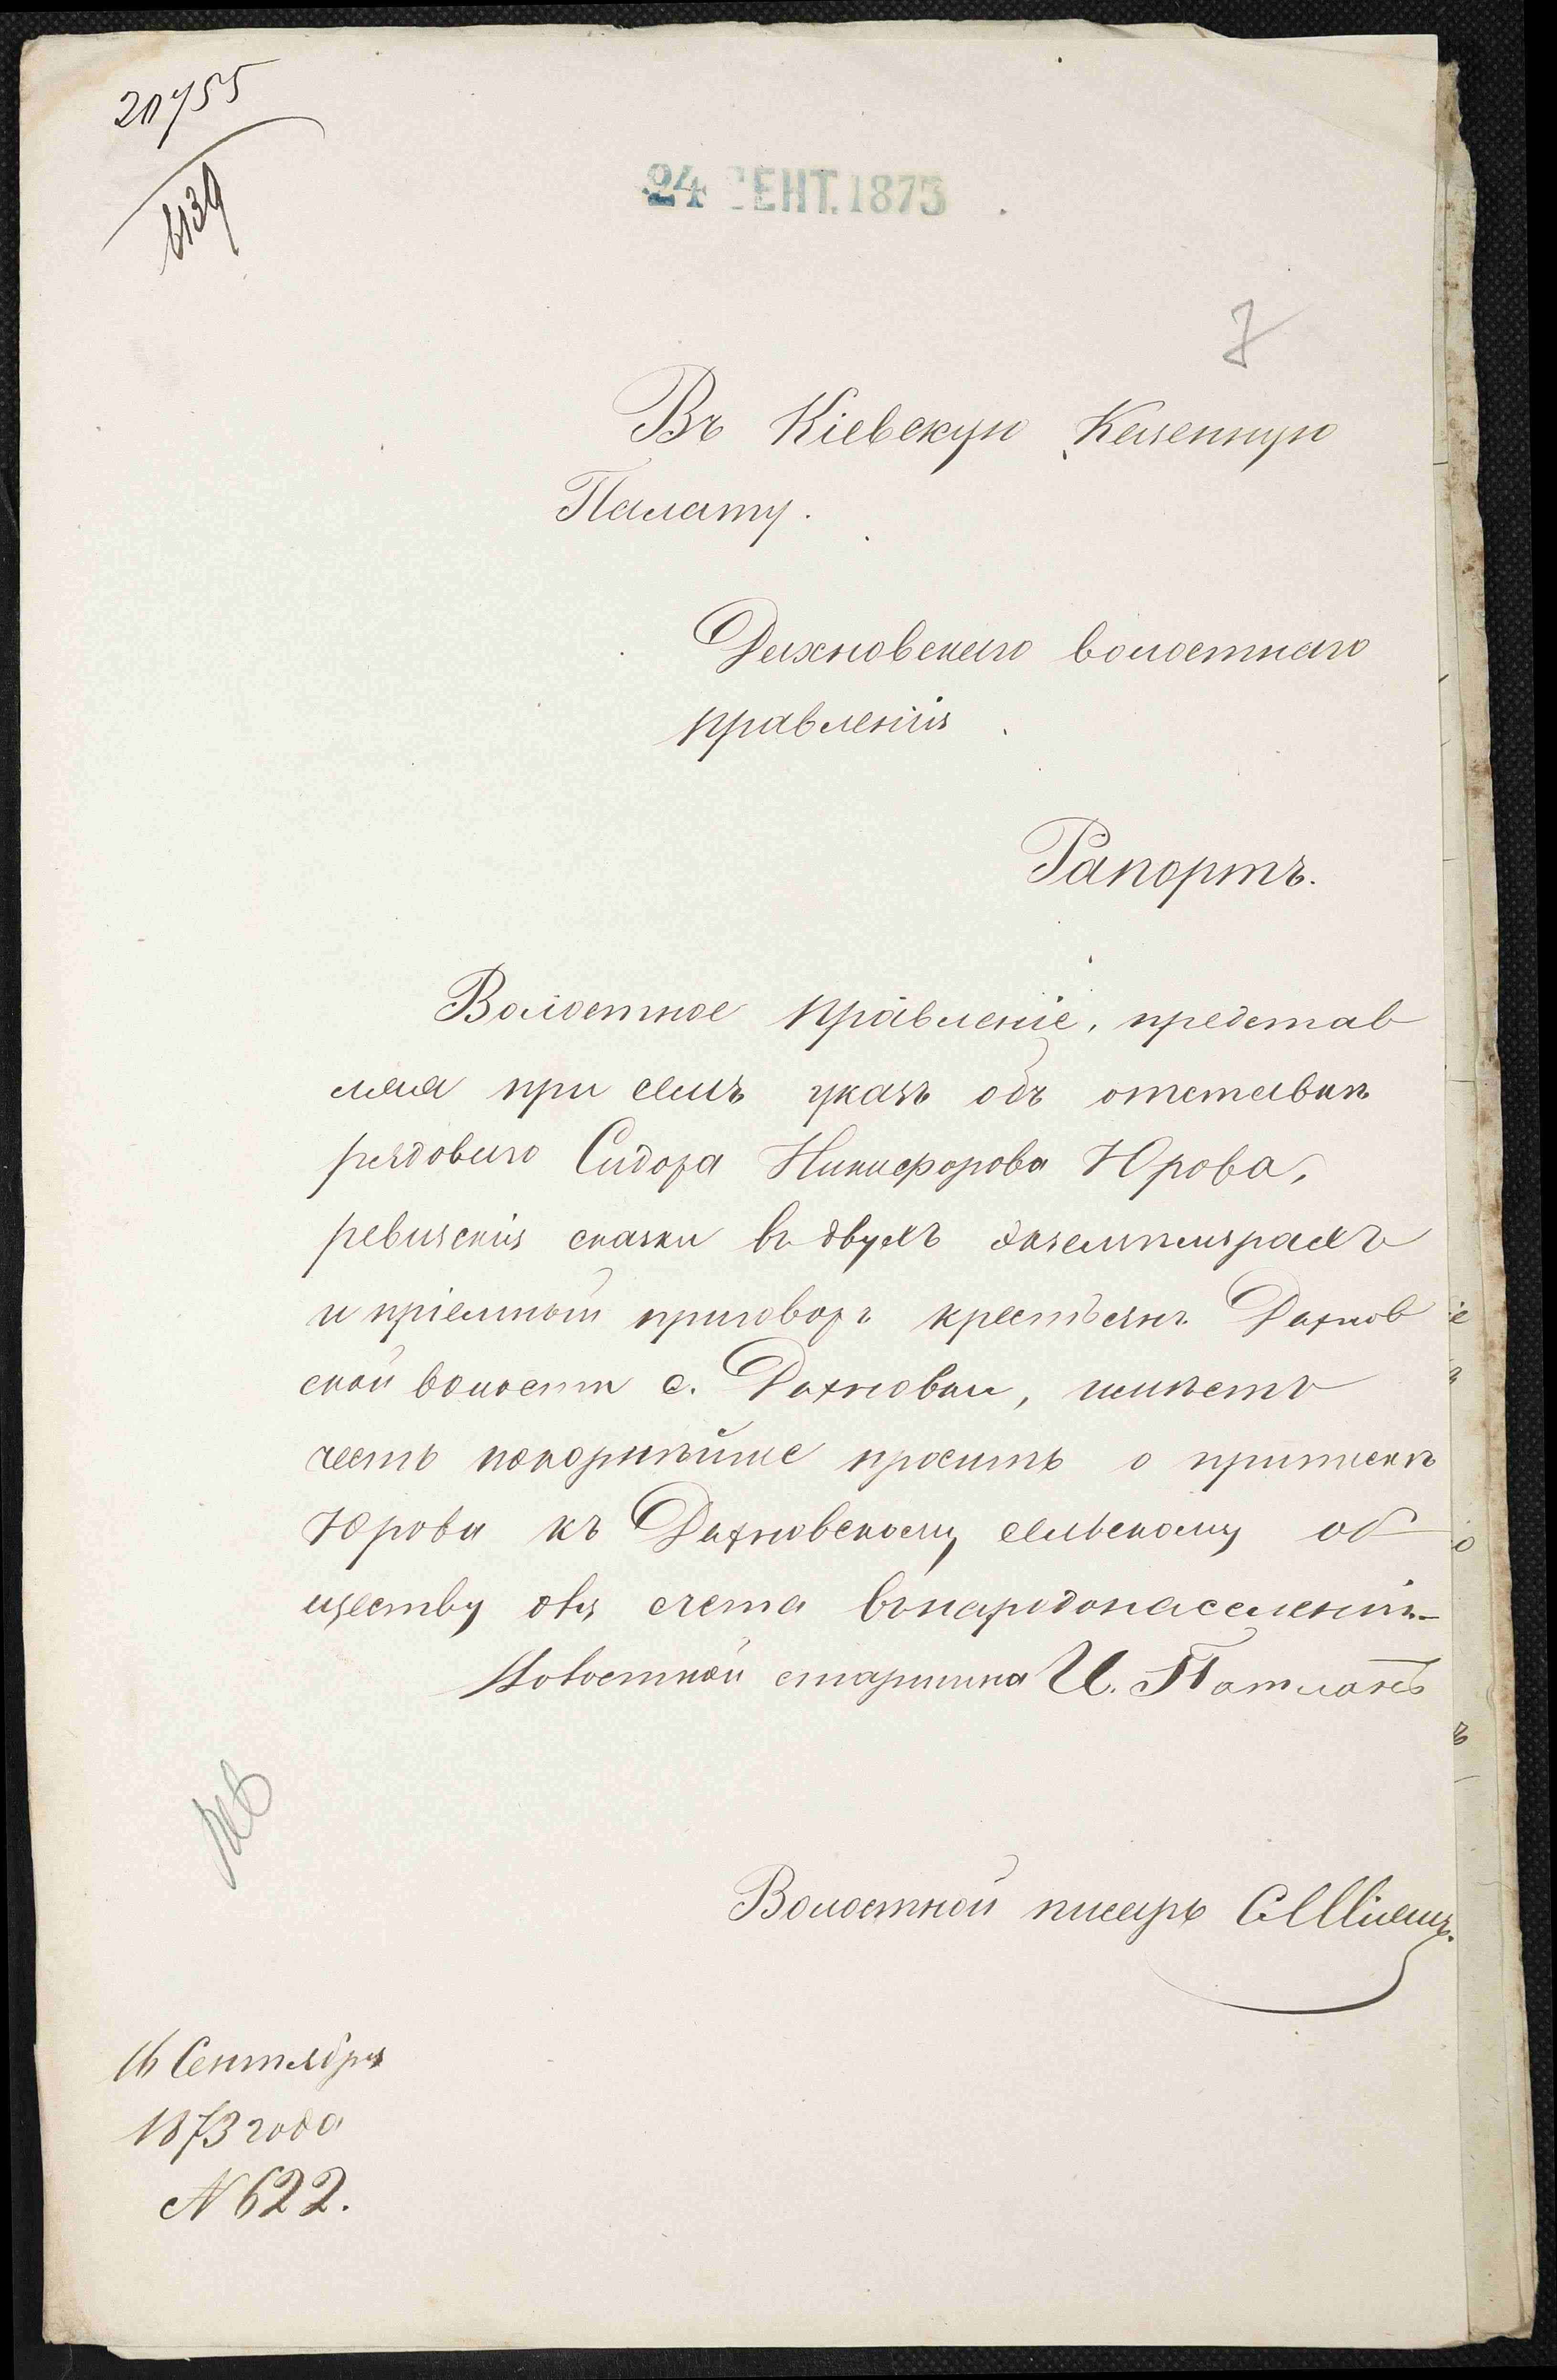 20755
6139
24 СЕНТ. 1873
7
Въ Кіевскую Казенную
Палату.
Дахновскаго волостнаго
правленія
Рапортъ.
Волостное правленіе, представ
ляя при семъ указъ объ отставкѣ
рядоваго Сидора Никифорова Юрова,
ревизскія сказки въ двухъ экземплярахъ
и пріемный приговоръ крестьянъ Дахнов
ской волости с. Дахновки, имѣетъ
честь покорнѣйше просить о припискѣ
Юрова къ Дахновскому сельскому об
ществу для счета в народонаселеніи
Волостной старшина И. Патланъ
Волостной писарь
16 Сентября
1873 года
N 622.